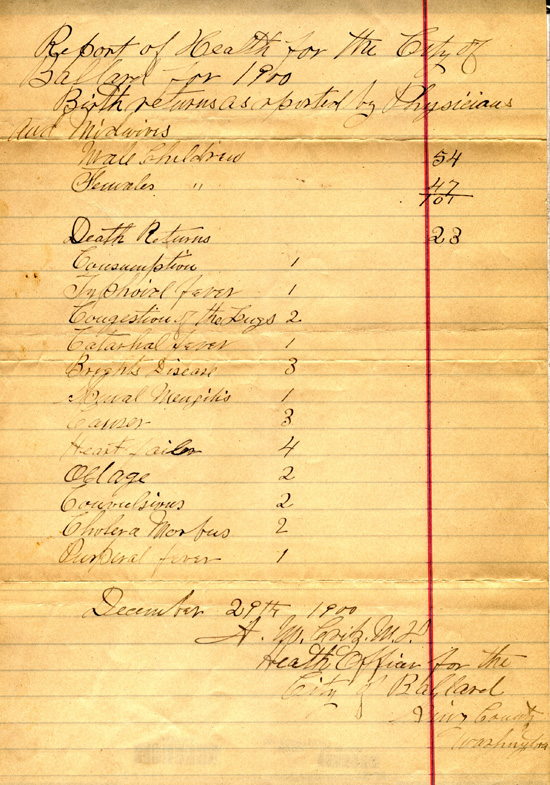 Report of Health for the City of
Ballard for 1900
Birth returns as rported by Physicians
and Midwivis
Male Children 54
Females " 47
101
Death Returns 23
Consumption 1
Typhoird fever 1
Congestion of the Lugs 2
Catarhal fever 1
Brights Disease 3
Mengitis 1
Canser 3
Heart failer 4
Old age 2
Convulsions 2
Cholera Morbus 2
Purperal fever 1
December 29th 1900
A. M. Critz. M.D
Heath Officer for the
City of Ballard
King County
Washington